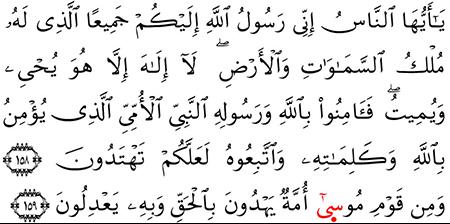 يَـٰٓأَيُّهَا ٱلنَّاسُ إِنِّى رَسُولُ ٱللَّهِ إِلَيْكُمْ جَمِيعًا ٱلَّذِى لَهُۥ
مُلْكُ ٱلسَّمَـٰوَٰتِ وَٱلْأَرْضِ ۖ لَآ إِلَـٰهَ إِلَّا هُوَ يُحْىِۦ
وَيُمِيتُ ۖ فَـَٔامِنُوا۟ بِٱللَّهِ وَرَسُولِهِ ٱلنَّبِىِّ ٱلْأُمِّىِّ ٱلَّذِى يُؤْمِنُ
بِٱللَّهِ وَكَلِمَـٰتِهِۦ وَٱتَّبِعُوهُ لَعَلَّكُمْ تَهْتَدُونَ ﴿١٥٨﴾
وَمِن قَوْمِ مُوسَىٰٓ أُمَّةٌ يَهْدُونَ بِٱلْحَقِّ وَبِهِۦ يَعْدِلُونَ ﴿١٥٩﴾